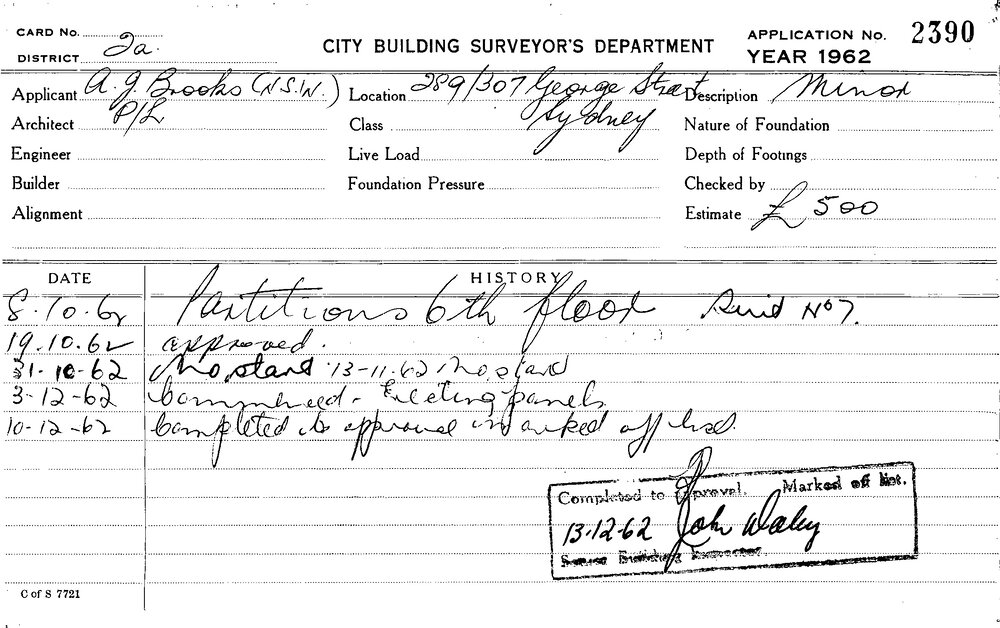 CARD No.
DISTRICT 2a.
CITY BUILDING SURVEYOR'S DEPARTMENT
APPLICATION No. 2390
YEAR 1962
Applicant A. G. Brooks (N.S.W.) P/L
Location 289/307 George Street Sydney
Description Minor
Architect
Class
Nature of Foundation
Engineer
Live Load
Depth of Footings
Builder
Foundation Pressure
Checked by
Alignment
Estimate £ 500
DATE HISTORY
8.10.62 Partitions 6th floor No 7.
19.10.62 approved.
31.10.62 No start 13-11.62 No start
3-12-62 Commenced - Erecting panels
10-12-62 Completed to approval marked off list.
Completed to approval. Marked off list.
13-12-62 John Daley
Senior Building Inspector
C of S 7721